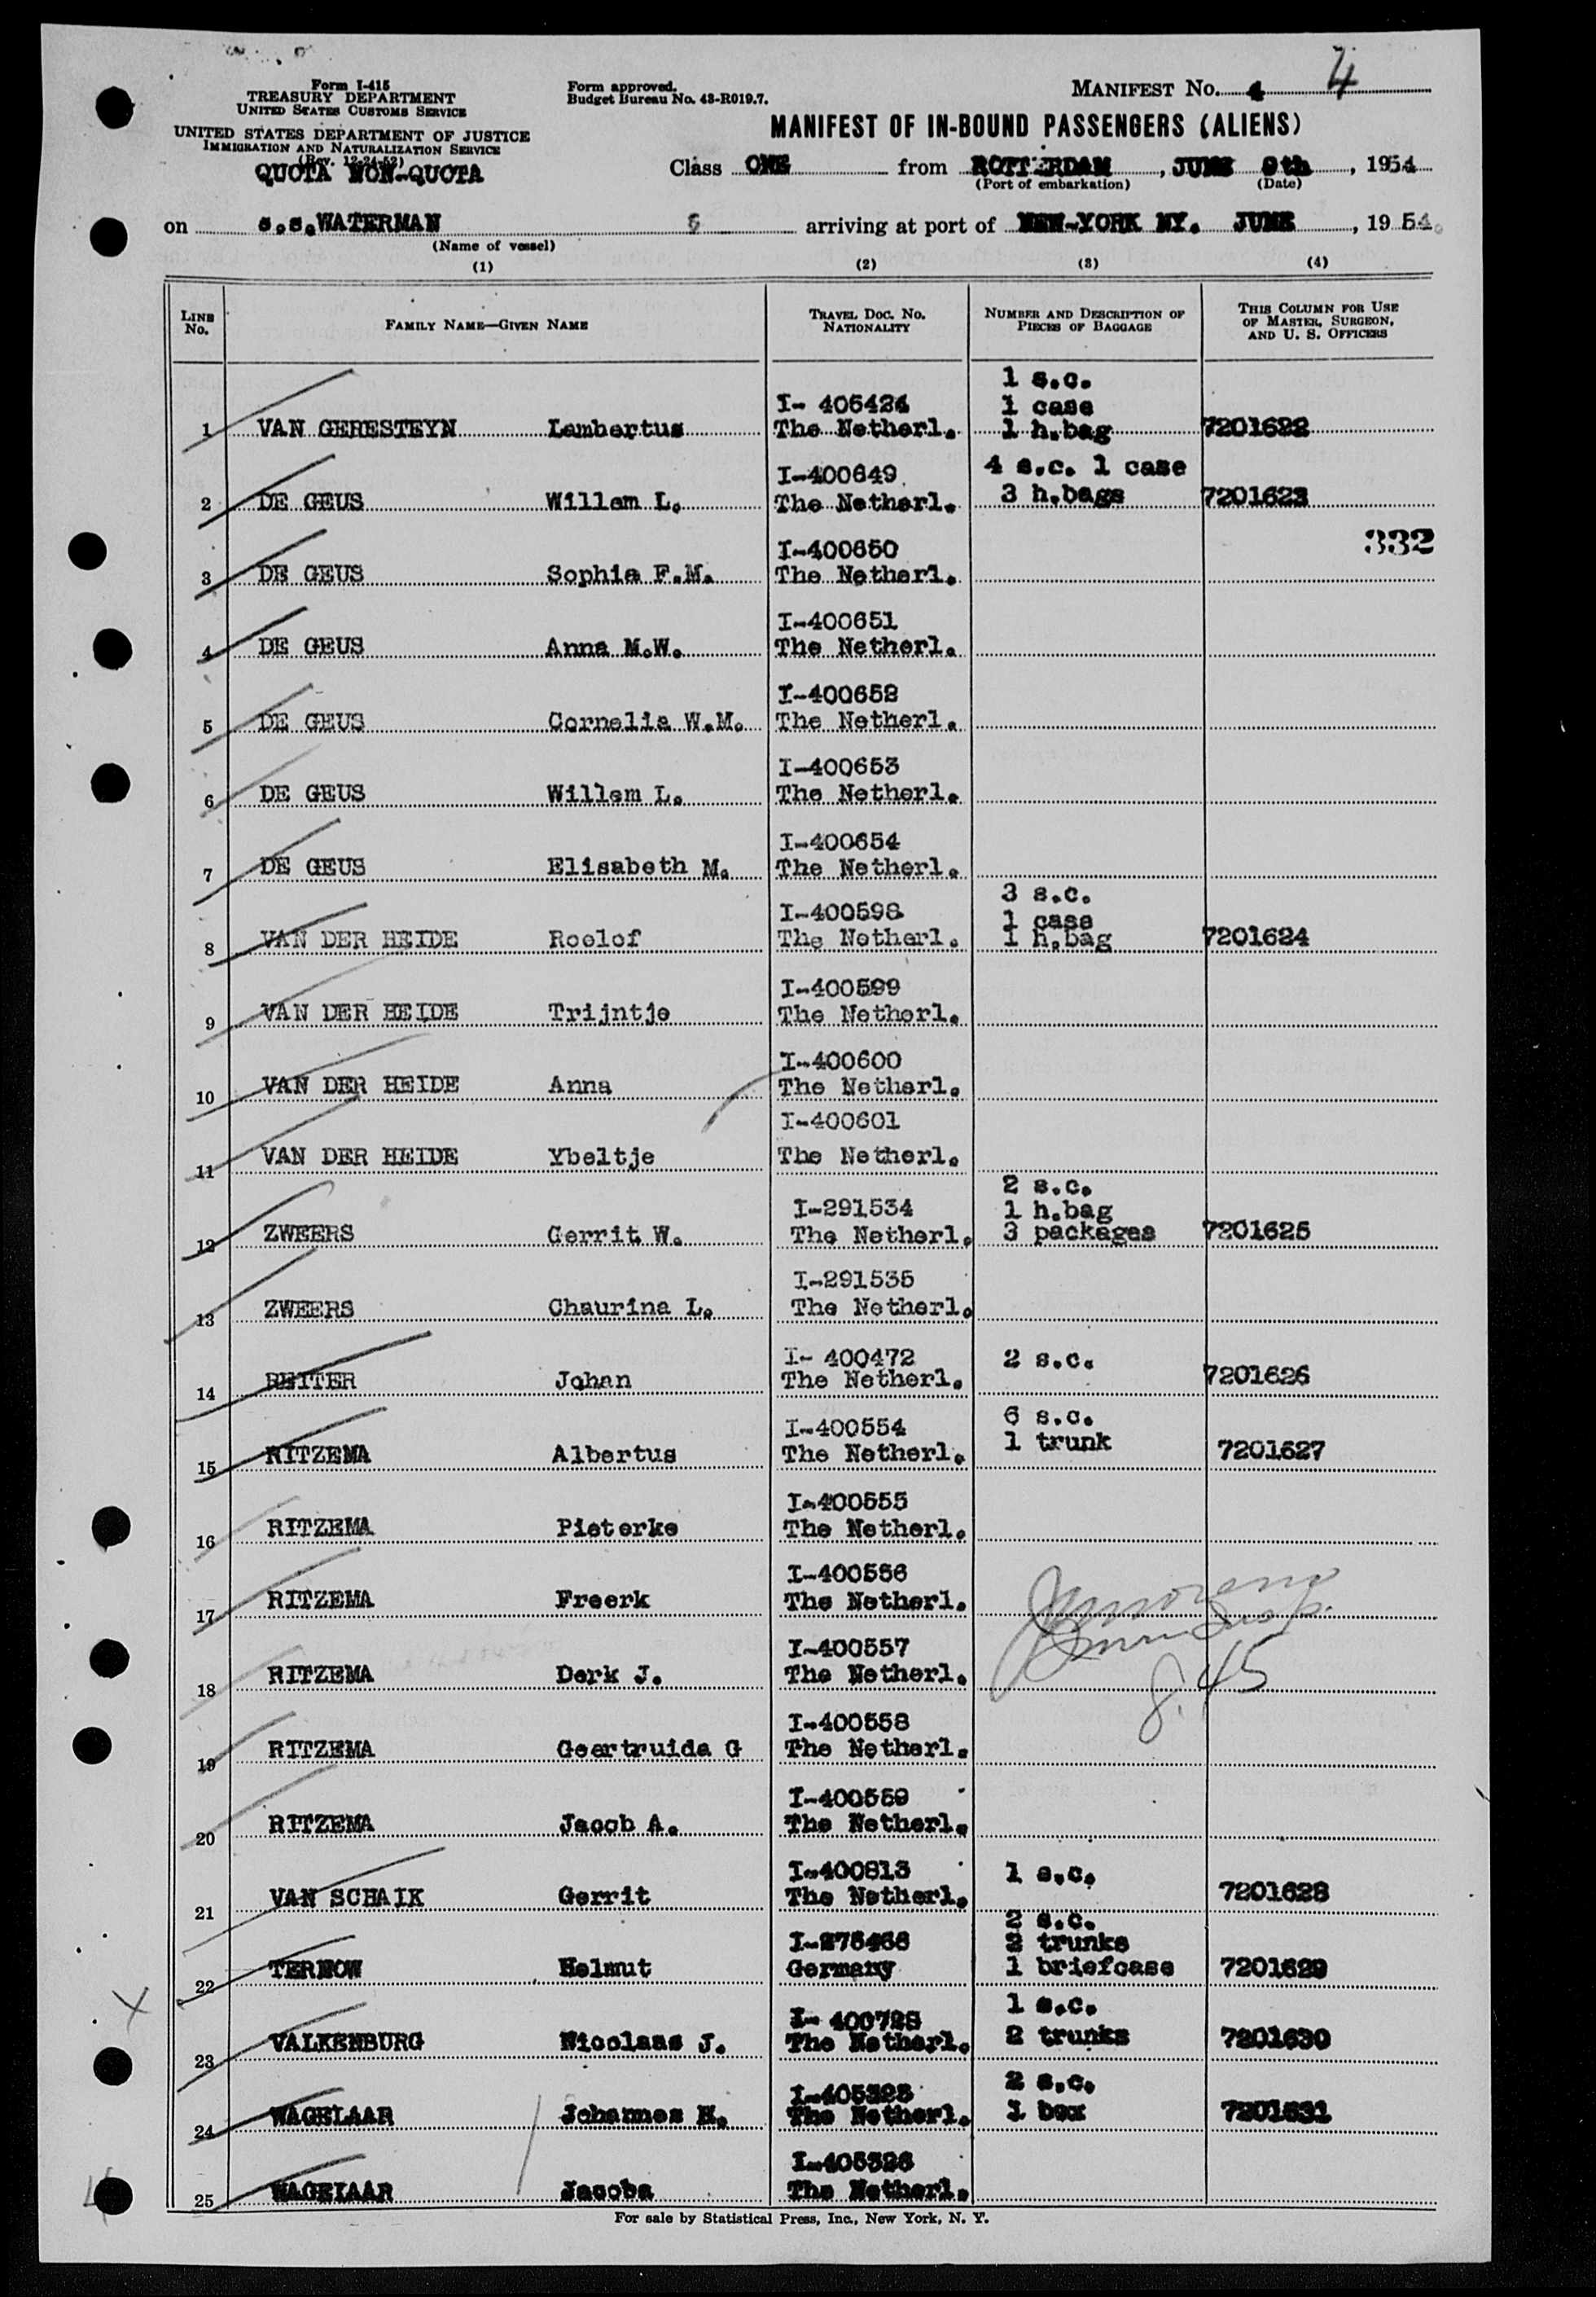 4
Form I-415
TREASURY DEPARTMENT
UNITED STATES CUSTOMS SERVICE
UNITED STATES DEPARTMENT OF JUSTICE
IMMIGRATION AND NATURALIZATION SERVICE
(Rev. 12-24-52)
QUOTA NON-QUOTA
Form approved.
Budget Bureau No. 43-R019.7.
MANIFEST No. 4
MANIFEST OF IN-BOUND PASSENGERS (ALIENS)
Class ONE from ROTTERDAM, JUNE 9th, 1954
(Port of embarkation) (Date)
on s.s.WATERMAN arriving at port of NEW-YORK NY. JUNE, 1954.
(Name of vessel)
(1) (2) (3) (4)
LINE No. FAMILY NAME—GIVEN NAME TRAVEL DOC. No. NATIONALITY NUMBER AND DESCRIPTION OF PIECES OF BAGGAGE THIS COLUMN FOR USE OF MASTER, SURGEON, AND U. S. OFFICERS
1 s.c.
I- 405424 1 case
1 VAN GERESTEYN Lambertus The Netherl. 1 h.bag 7201622
I-400649 4 s.c. 1 case
2 DE GEUS Willem L. The Netherl. 3 h.bags 7201623
332
I-400650
3 DE GEUS Sophia F.M. The Netherl.
I-400651
4 DE GEUS Anna M.W. The Netherl.
I-400652
5 DE GEUS Cornelia W.M. The Netherl.
I-400653
6 DE GEUS Willem L. The Netherl.
I-400654
7 DE GEUS Elisabeth M. The Netherl.
3 s.c.
I-400598 1 case
8 VAN DER HEIDE Roelof The Netherl. 1 h.bag 7201624
I-400599
9 VAN DER HEIDE Trijntje The Netherl.
I-400600
10 VAN DER HEIDE Anna The Netherl.
I-400601
11 VAN DER HEIDE Ybeltje The Netherl.
2 s.c.
I-291534 1 h.bag
12 ZWEERS Gerrit W. The Netherl. 3 packages 7201625
I-291535
13 ZWEERS Chaurina L. The Netherl.
I- 400472 2 s.c.
14 REITER Johan The Netherl. 7201626
I-400554 6 s.c.
15 RITZEMA Albertus The Netherl. 1 trunk 7201627
I-400555
16 RITZEMA Pieterke The Netherl.
I-400556
17 RITZEMA Freerk The Netherl.
I-400557
18 RITZEMA Derk J. The Netherl.
8.45
I-400558
19 RITZEMA Geertruida G The Netherl.
I-400559
20 RITZEMA Jacob A. The Netherl.
I-400813 1 s.c.
21 VAN SCHAIK Gerrit The Netherl. 7201628
2 s.c.
I-276468 2 trunks
22 TERNOW Helmut Germany 1 briefcase 7201629
I- 400728 1 s.c.
23 VALKENBURG Nicolaas J. The Netherl. 2 trunks 7201630
I-405325 2 s.c.
24 WAGELAAR Johannes H. The Netherl. 1 box 7201631
I-405326
25 WAGELAAR Jacoba The Netherl.
For sale by Statistical Press, Inc., New York, N. Y.